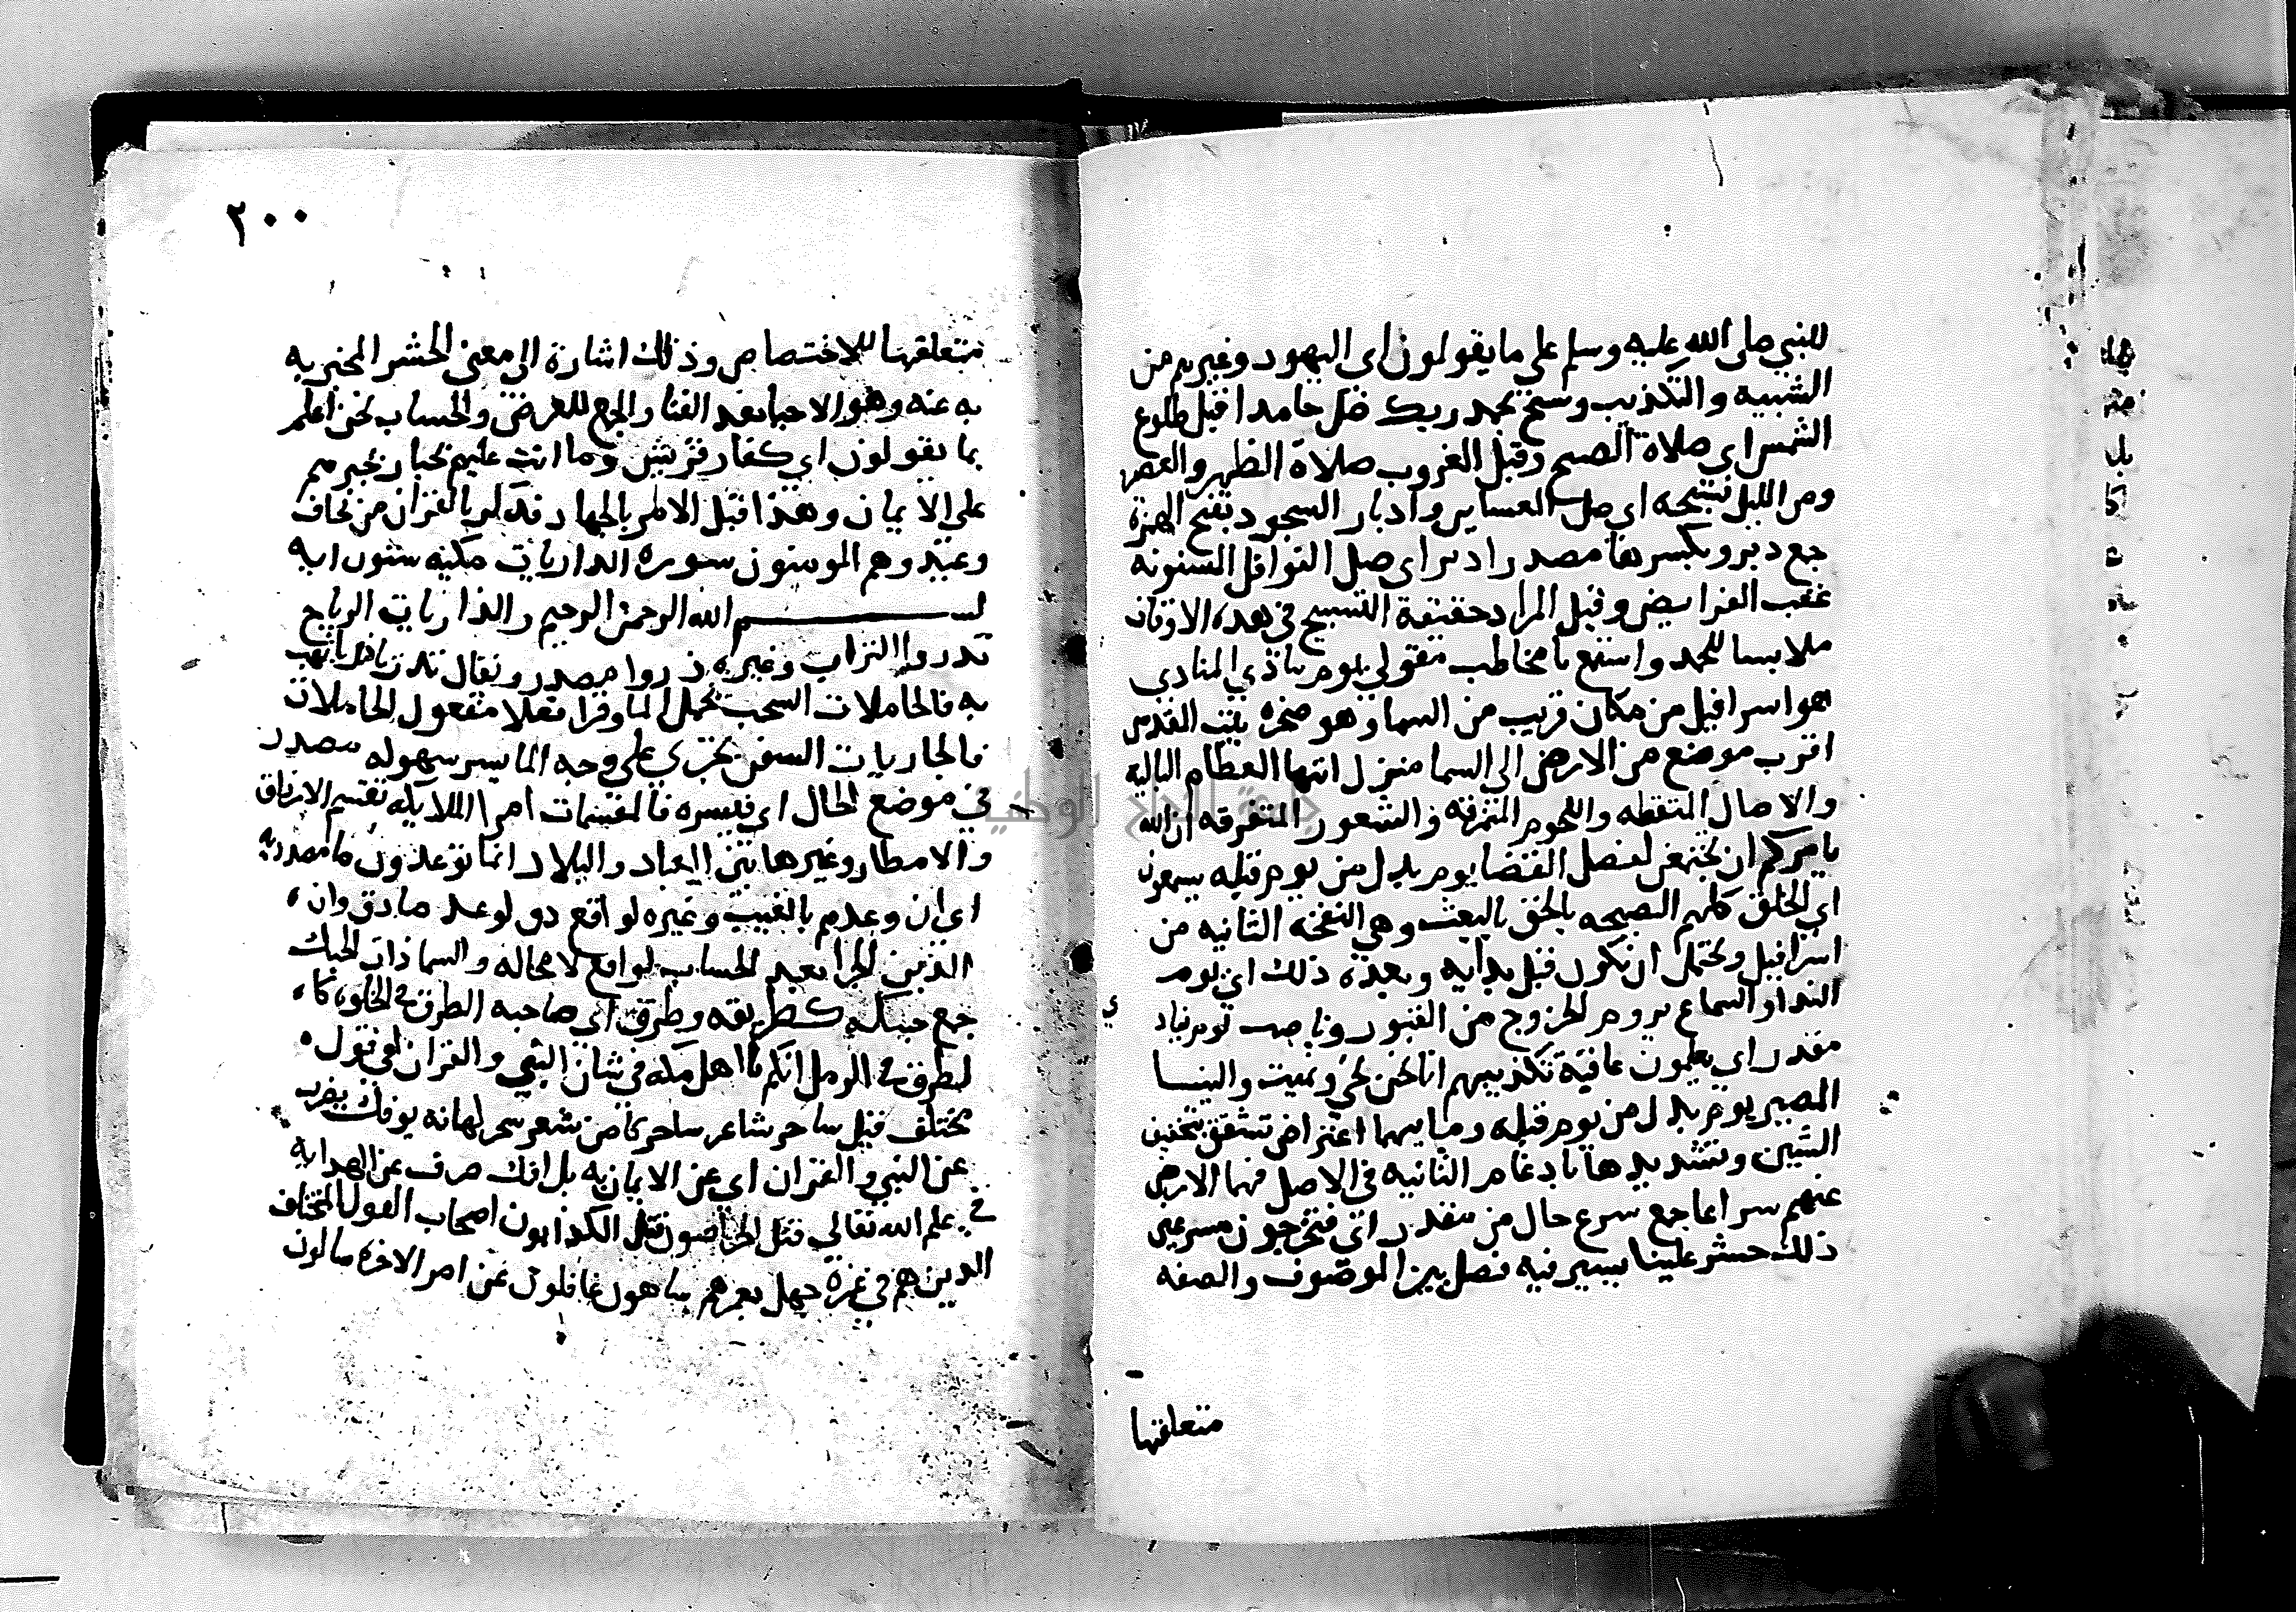 للنبي صلى الله عليه وسلم على ما يقولون اى اليهود وغيرهم من
التشبيه والتكذيب وسبح بحمد ربك صل حامدا قبل طلوع
الشمس اي صلاة الصبح وقبل الغروب صلاة الظهر والعصر
ومن الليل فسبحه اي صل العشاين وادبار السجود بفتح الهمزة
جمع دبر وبكسرها مصدر ادبر اى صل النوافل المسنونه
عقب الفرايض وقيل المراد حقيقة التسبيح في هذه الاوقات
ملابسا للحمد واستمع يا مخاطب مقولي يوم ينادي المنادي
هو اسرافيل من مكان قريب من السما وهو صخرة بيت المقدس
اقرب موضع من الارض الى السما يقول ايتها العظام البالية
والاوصال المتقطعه واللحوم المتمزقه والشعور المتفرقه ان الله
يامركم ان تجتمعن لفصل القضا يوم بدل من يوم قبله يسمعون
اي الخلق كلهم الصيحه بالحق بالبعث وهي النفخة الثانيه من
اسرافيل ويحتمل ان تكون قبل ندايه وبعده ذلك اي يوم
الندا والسماع يوم الخروج من القبور وناصب يوم يناد
مقدر اي يعلمون عاقبة تكذيبهم انا نحن نحي ونميت والينا
المصير يوم بدل من يوم قبله وما بينهما اعتراض تشقق بتخفيف
الشين وتشديدها بادغام الثانيه في الاصل فيها الارض
عنهم سراعا جمع سريع حال من مقدر اي فيخرجون مسرعين
ذلك حشر علينا يسير فيه فصل بين الموصوف والصفه
متعلقها
٢٠٠
بمتعلقها للاختصاص وذلك اشارة الى معنى الحشر المخبر به
به عنه وهو الاحيا بعد الفنا والجمع للعرض والحساب نحن اعلم
بما يقولون اي كفار قريش وما انت عليهم بجبار تجبرهم
على الايمان وهذا قبل الامر بالجهاد فذكر بالقران من يخاف
وعيد وهم المومنون سورة الذاريات مكيه ستون ايه
بسم الله الرحمن الرحيم والذاريات الرياح
تذروا التراب وغيره ذروا مصدر ويقال تذريه ذريا تهب
به فالحاملات السحب تحمل الما وقرا ثقلا مفعول الحاملات
فالجاريات السفن تجري على وجه الما يسرا بسهوله مصدر
في موضع الحال اي ميسره فالمقسمات امرا الملايكه تقسم الارزاق
والامطار وغيرها بين العباد والبلاد انما توعدون ما مصدريه
اي ان وعدهم بالغيب وغيره لواقع دق لوعد صادق وان
الدين الجزا بعد الحساب لواقع لا محاله والسما ذات الحبك
جمع حبيكه كطريقه وطرق اي صاحبه الطرق في الخلقه كا
لطرق في الرمل انكم يا اهل مكه في شان النبي والقران لفي قول
مختلف قيل ساحر شاعر ساحر كاهن شعر سحر كهانه يوفك يصرف
عن النبي والقران اي عن الايمان به بل افك صرف عن الهدايه
في علم الله تعالى قتل الخراصون قتل الكذابون اصحاب القول المختلف
الذين هم في غمرة جهل يغمرهم ساهون غافلون عن امر الاخره سالون
جامعة النجاح الوطنية